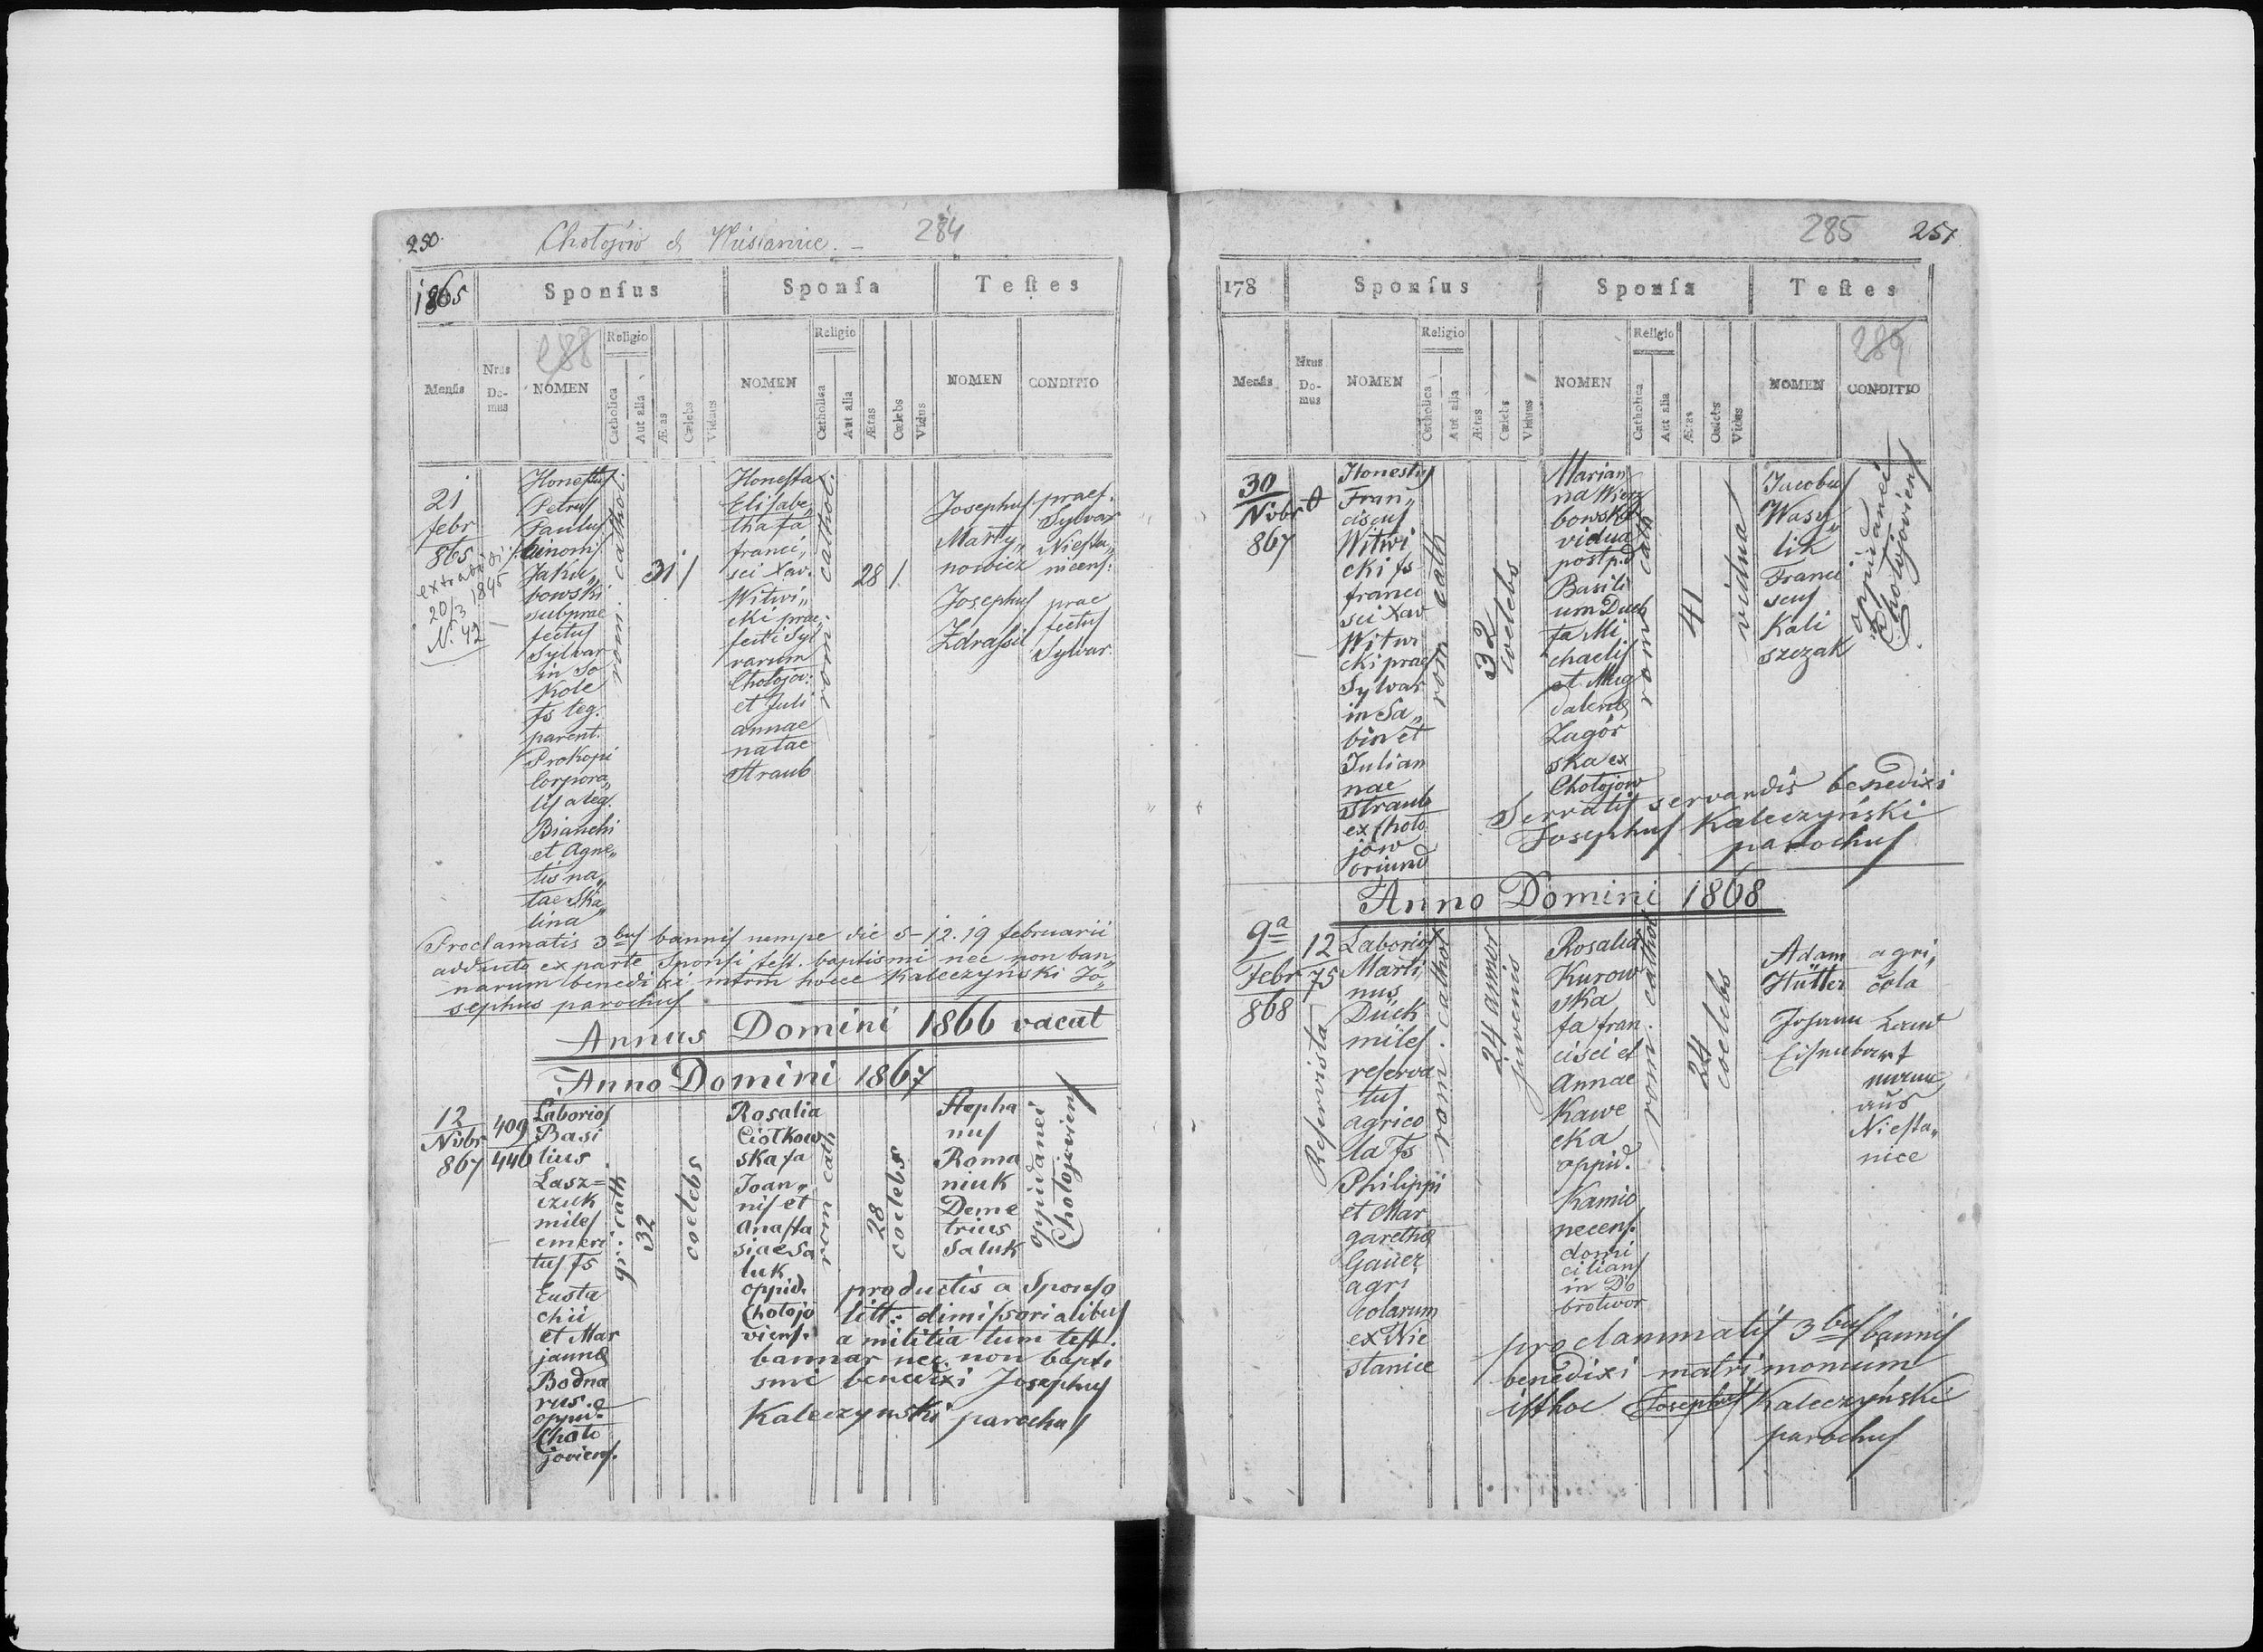 250.
Chotojów
284
1865
Sponſus
Sponſa
Teſtes
288
Religio
Religio
Menſis
Nrus Do-mus
NOMEN
Catholica
Aut alia
Cœlebs
Viduus
NOMEN
Catholica
Aut alia
Ætas
Cœlebs
NOMEN
CONDITIO
21
febr
865
20/3 1845
N. 42
Petrus
Paulus
Jaku„
bowski
subprae
fectus
Sylvar
in So
Kole
fs leg.
parent.
Prokopi
Corpora„
Bianchi
et Agne„
tis na„
tae Ska„
lina
rom. cathol.
31
Honesta
Elisabe„
tha fa
franci„
sci Xav.
Witwi„
cki prae„
fecti Syl
varum
Chotojov:
et Juli
annae
natae
Straub
rom. cathol.
28
Josephus
Marty„
nowicz
Josephus
praef.
Sylvar
Niesta„
nicens.
prae
fectus
Sylvar
Proclamatis 3bus bannis nempe die 5-12. 19 februarii
adducto ex parte Sponsi test. baptismi nec non ban„
narum benedixi mtrm hocce Kaleczyński Jo„
sephus parochus
Annus Domini 1866 vacat
Anno Domini 1867
12
Nvbr
867
409
446
Laborios
Basi
lius
Lasz=
czuk
miles
emeri
tus fs
Eusta
chii
et Mar
jannae
Bodna
rus.
oppid.
Choto
joviens.
gr. cath.
32
coelebs
Rosalia
Ciolkow
ska fa
Joan„
nis et
Anasta
siae Sa
luk
oppid.
Chotojo
viens.
rom cath
28
coelebs
Stepha
nus
Roma
niuk
Deme
trius
Saluk
oppidanei
Chotojoviens
productis a Sponso
litt: dimissorialibus
a militia tum test.
bannar nec. non bapti
smi benedixi Josephus
Kaleczynski parochus
285
251
178
Sponſus
Sponſa
Teſtes
289
Religio
Religio
Menſis
Nrus Do-mus
NOMEN
Catholica
Aut alia
Ætas
Cœlebs
Viduus
NOMEN
Catholica
Aut alia
Ætas
Cœlebs
Vidua
NOMEN
CONDITIO
30
Nvbr
867
Honestus
Fran„
ciscus
Witwi
cki fs
franci
sci Xav
Witwi
cki praef
Sylvar
in Sa„
bin et
Julian
nae
Straub
ex Choto
jow
oriund
rom cath
32
coelebs
Marian
na Wierz
bowska
vidua
post p.d.
Basili
um Duch
fa Mi
chaelis
et Mag
dalenae
Zagór
ska ex
Chotojow
rom cath
41
vidua
Jacobus
Wasy„
lik
Franci
scus
Kali
szczak
oppidanei
Chotojoviens
Servatis servandis benedixi
Josephus Kaleczyński
parochus
Anno Domini 1868
9a
Febr
868
12
75
Reservista
Laborios
Marti
nus
Dück
miles
reserva
tus
agrico
la fs
Philippi
et Mar
garethae
Gauer
agri
colarum
ex Nie
stanice
rom. cathol
24 annor
juvenis
Rosalia
Kurow
ska
fa fran
cisci et
Annae
Kawe
cka
oppid.
Kamio
necens.
domi
cilians
in Do
brotwor
rom. cathol
24
coelebs
Adam
Hütter
Johann
Eisenbart
agri„
cola
aus
Niesta„
nice
proclammatis 3bus bannis
benedixi matrimonium
isthoc Josephus Kaleczyński
parochus